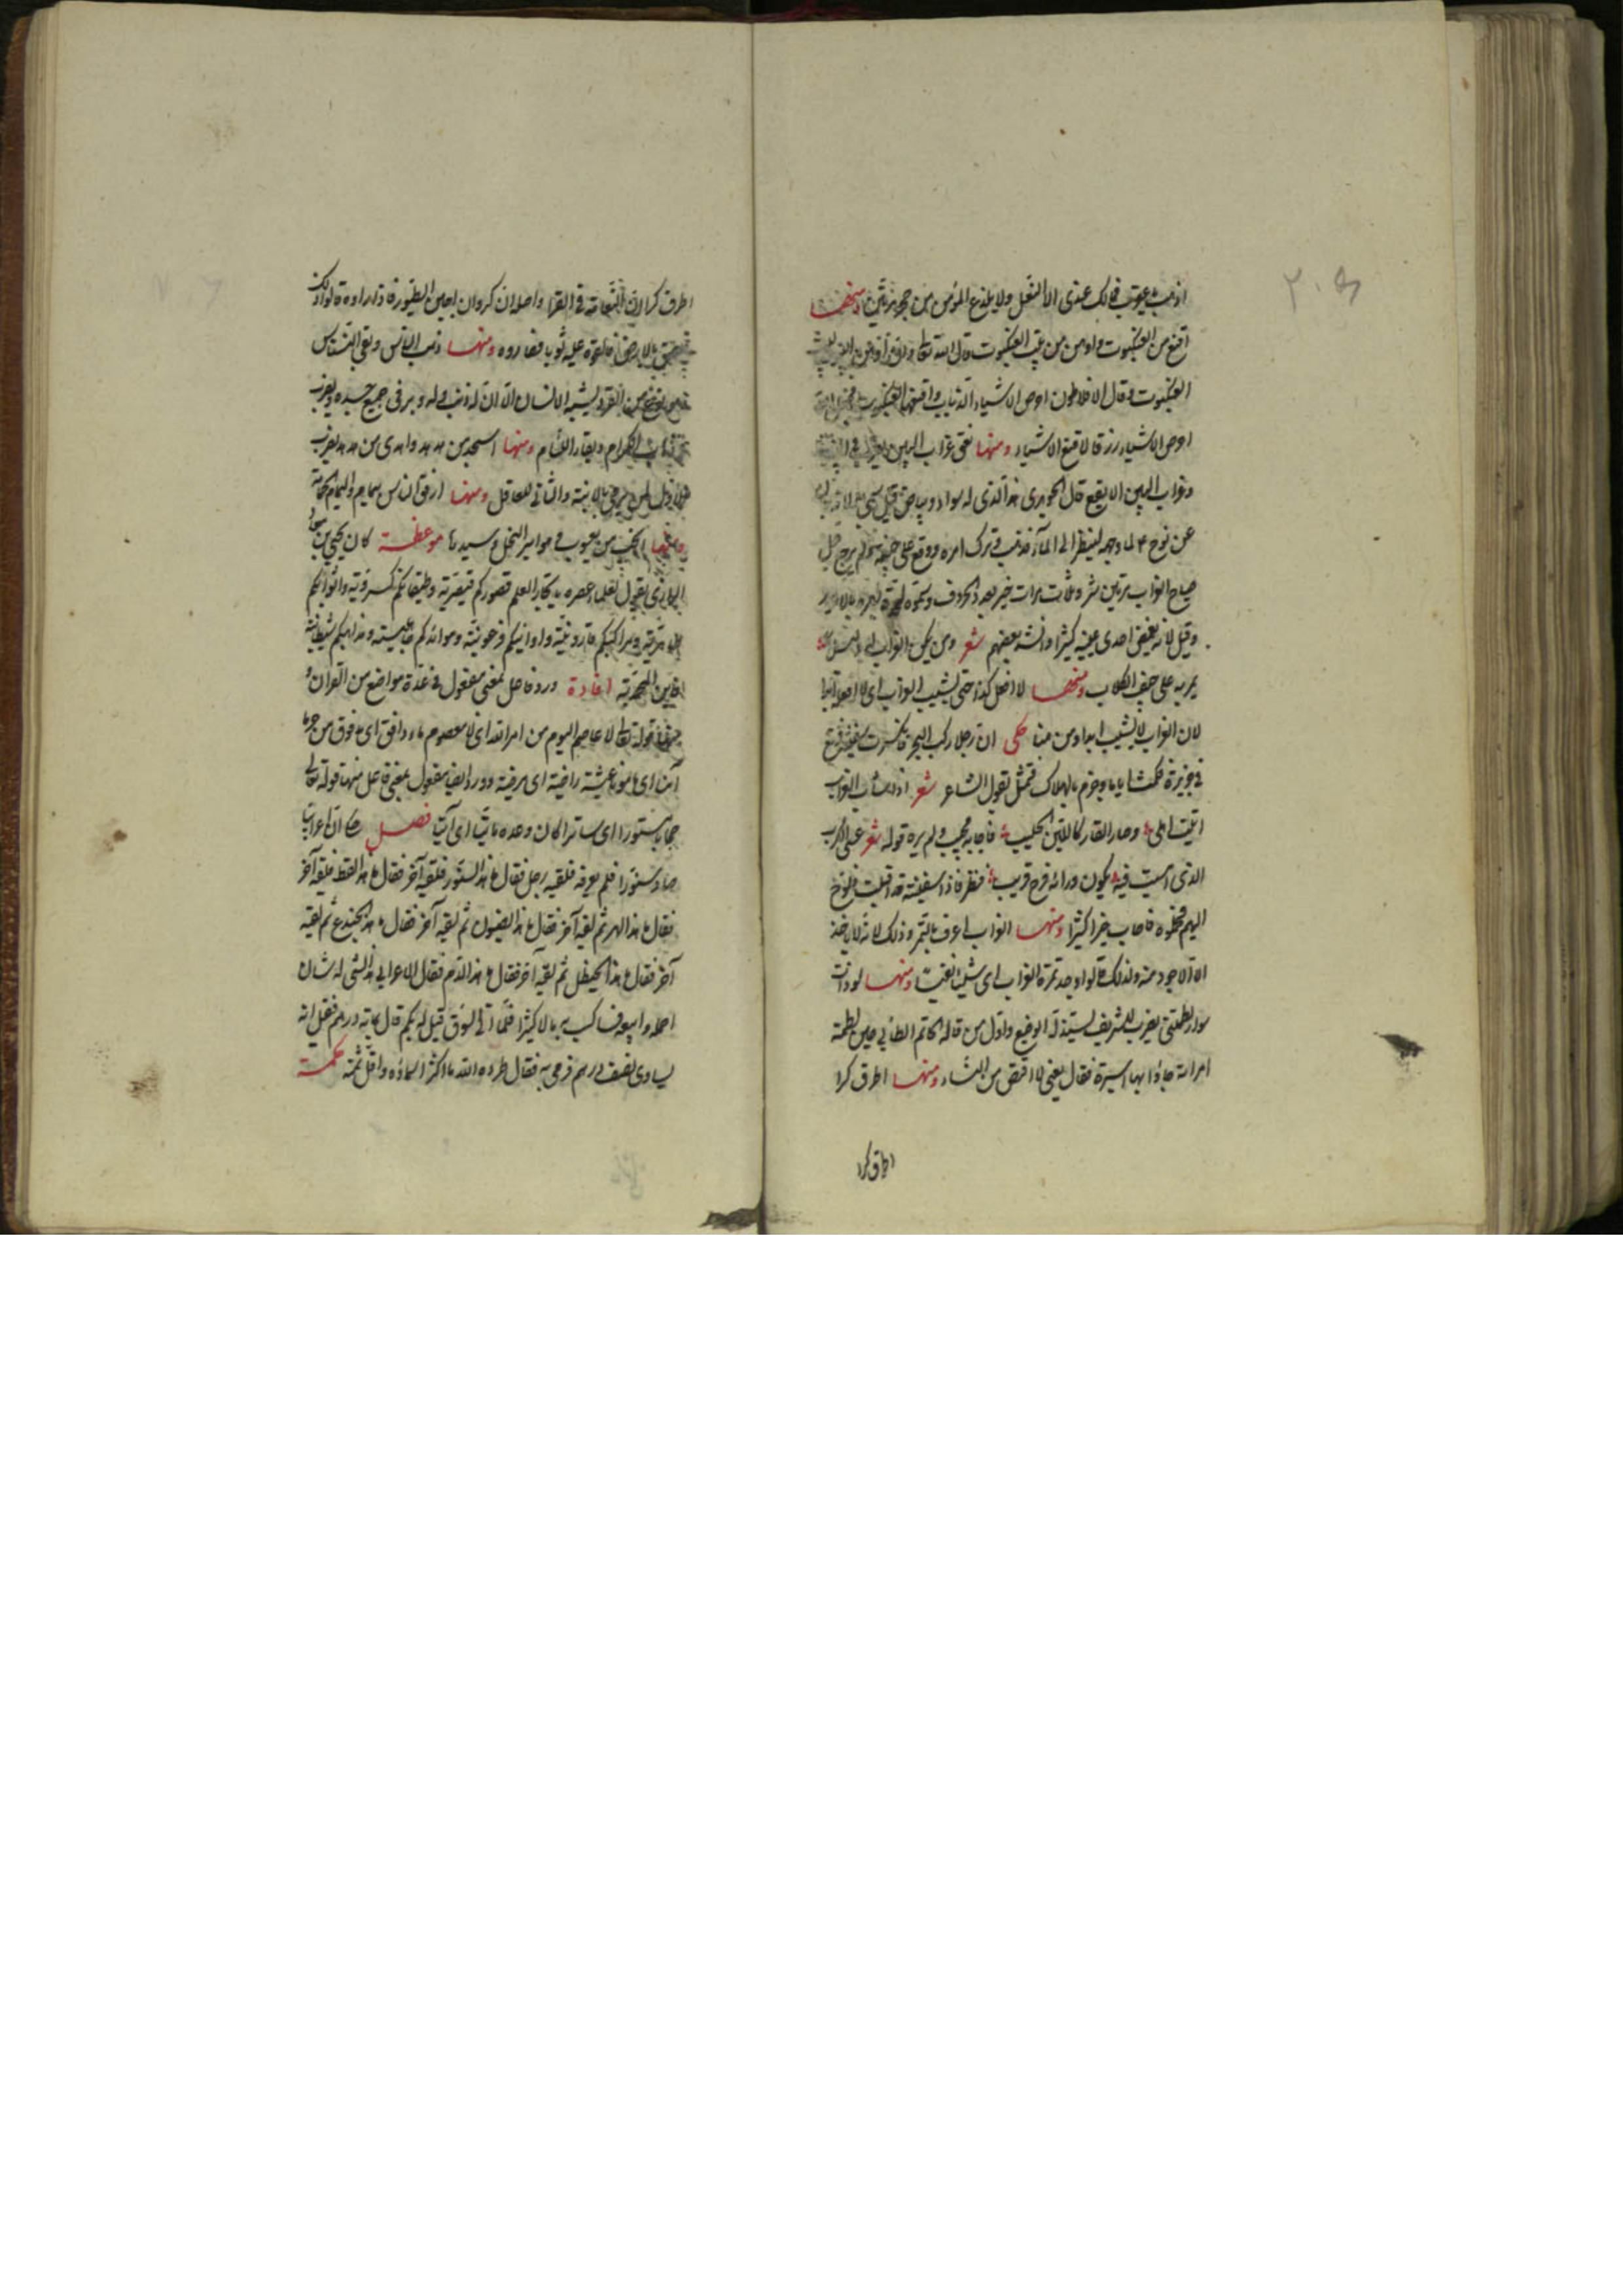 اذهب يعقوب فمالك عندى الا النعل ولا يلدغ المؤمن من جحر مرتين ومنها
اقنع من العنكبوت واوهن من بيت العنكبوت قال الله تعالى وان اوهن البيوت لبيت
العنكبوت وقال افلاطون احرص الاشياء الذباب واقنعها العنكبوت فجعل الله
احرص الاشياء رزقا لاقنع الاشياء ومنها نعق غراب البين
وغراب البين الابقع قال الجوهرى هو الذى له سواد وبياض قيل سمى
عن نوح ع لما وجهه لينظر الى الماء فذهب فى ترك امره ووقع على جيفة ولم يرجع قيل
صياح الغراب مرتين شر وثلاث مرات خير بعدد الحروف
وقيل لانه يغمض احدى عينيه كثيرا وانشد بعضهم شعر ومن يكن الغراب له دليلا
يمر به على جيف الكلاب ومنها لا افعل كذا حتى يشيب الغراب اى لا افعله ابدا
لان الغراب لا يشيب ابدا ومن هنا حكى ان رجلا ركب البحر فانكسرت سفينته فوقع
فى جزيرة فمكث اياما وجزم بالهلاك فتمثل بقول الشاعر شعر اذا شاب الغراب
اتيت اهلى وصار القار كاللبن الحليب فاجابه مجيب ولم يره قوله شعر عسى الكرب
الذى امسيت فيه يكون وراءه فرج قريب فنظر فاذا سفينة قد اقبلت فلوح
اليهم فحملوه فاصاب خيرا كثيرا ومنها الغراب اعرف بالتمر وذلك لانه لا ياخذ
الا الاجود منه ولذلك قالوا وجد تمرة الغراب اى شيئا نفيسا ومنها لو ذات
سوار لطمتنى يضرب للشريف يستذله الوضيع واول من قاله حاتم الطائى حين لطمته
امراة جاؤا بها اسيرة فقال يعنى لا اقتص من النساء ومنها اطرق كرا
اطرق كرا
اطرق كرا ان النعامة فى القرا واصله ان كروان اجبن الطيور فاذا ارادوه قالوا ذلك
بالارض فالقوا عليه ثوبا فصادوه ومنها ذهب الناس وبقى النسناس
نوع من القرود يشبه الانسان الا ان له ذنب وله وبر فى جميع جسده يضرب
ذهاب الكرام وبقاء اللئام ومنها اسجد من هدهد واهدى من هدهد يضرب
الاول لمن يرمى بالابنة والثانى للعاقل ومنها ارفق الناس بهايم والبهايم
ومنها انجب من يعسوب وهو امير النحل وسيدها موعظة كان يحيى بن معاذ
الرازى يقول لعلماء عصره يا معاشر العلم قصوركم قيصرية وطيقانكم كسروية واثوابكم
ومراكبكم قارونية واوانيكم فرعونية وموائدكم جاهلية ومذاهبكم شيطانية
فاين المحمدية افادة ورد فاعل بمعنى مفعول فى عدة مواضع من القران
منها قوله تعالى لا عاصم اليوم من امر الله اى لا معصوم ماء دافق اى مدفوق من حرما
آمنا اى مامونا عيشة راضية اى مرضية وورد ايضا مفعول بمعنى فاعل منها قوله تعالى
حجابا مستورا اى ساترا كان وعده ماتيا اى آتيا فصل حكى ان اعرابيا
صاد سنورا فلم يعرفه فلقيه رجل فقال ما هذا السنور فلقيه آخر فقال ما هذا القط فلقيه آخر
فقال ما هذا الهر ثم لقيه آخر فقال ما هذا الضيون ثم لقيه آخر فقال ما هذا الخيدع ثم لقيه
آخر فقال ما هذا الخيطل ثم لقيه آخر فقال ما هذا الدم فقال الاعرابى هذا الشى له شان
احمله وابيعه فاكسب به مالا كثيرا فلما اتى السوق قيل له بكم قال بمائة درهم فقيل انه
يساوى نصف درهم فرمى به فقال طرده الله ما اكثر اسماؤه واقل ثمنه حكمة